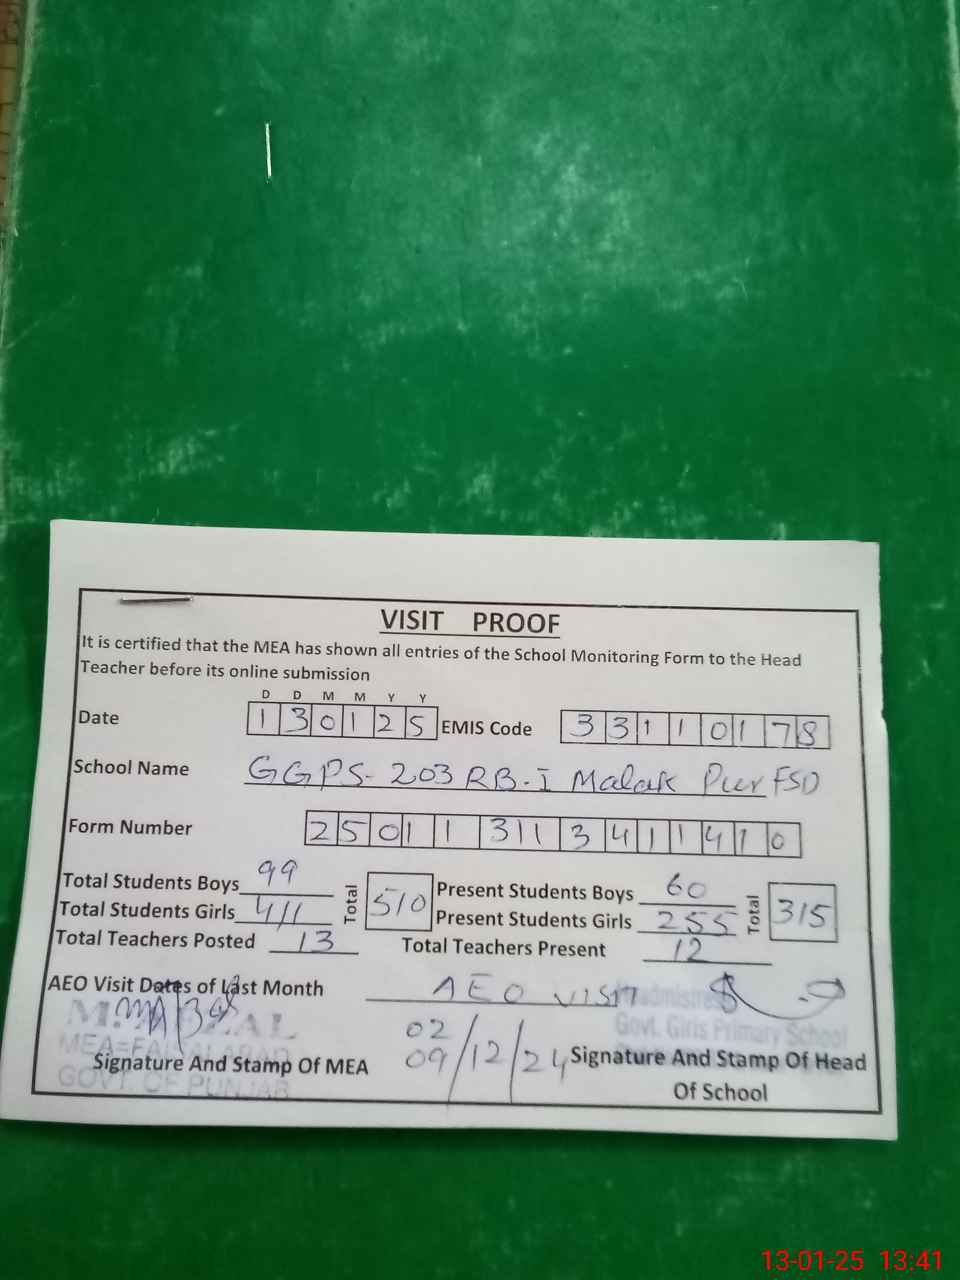 VISIT PROOF
It is certified that the MEA has shown all entries of the School Monitoring Form to the Head
Teacher before its online submission
D D M M Y Y
Date 1 3 0 1 2 5 EMIS Code 3 3 1 1 0 1 7 8
School Name GGPS-203 RB-I Malak Pur FSD
Form Number 2 5 0 1 1 3 1 1 3 4 1 1 4 1 0
Total Students Boys 99 Total 510 Present Students Boys 60 Total 315
Total Students Girls 411 Present Students Girls 255
Total Teachers Posted 13 Total Teachers Present 12
AEO Visit Dates of Last Month AEO VISIT
02
09/12/24
MEA=FAISALABAD
GOVT. OF PUNJAB
Signature And Stamp Of MEA
Govt. Girls Primary School
Signature And Stamp Of Head
Of School
13-01-25 13:41